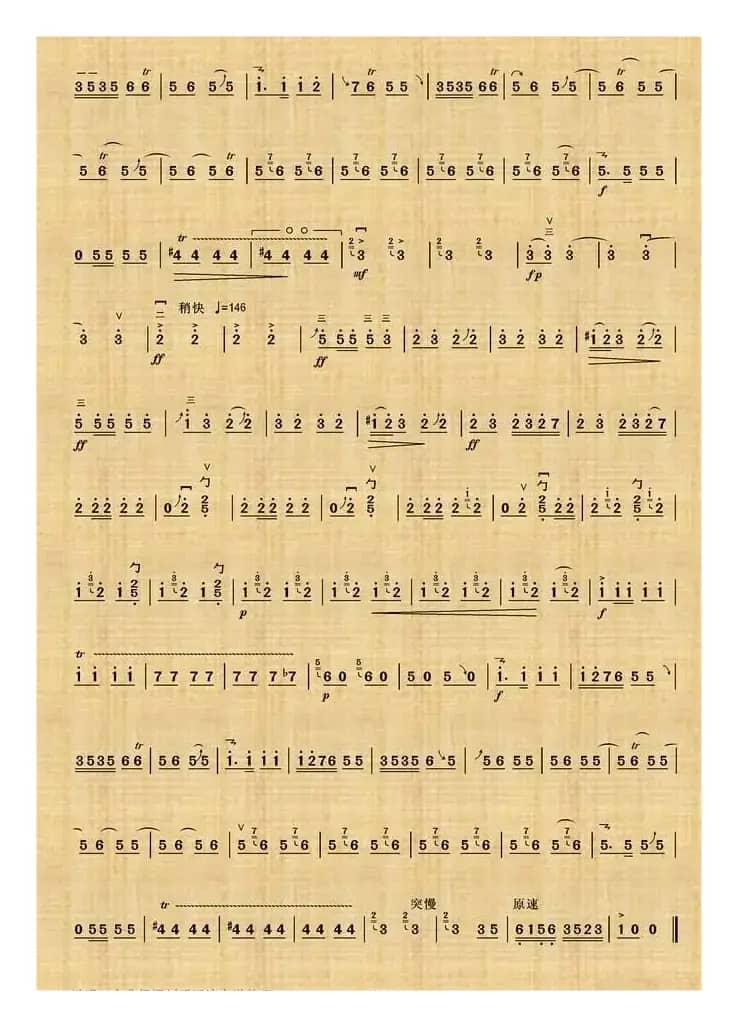 3535 6 6 | 5 6 5 5 | i. i i 2 | 7 6 5 5 | 3535 6 6 | 5 6 5 5 | 5 6 5 5 |
5 6 5 5 | 5 6 5 6 | 5 6 5 6 | 5 6 5 6 | 5 6 5 6 | 5 6 5 6 | 5. 5 5 5 |
f
0 55 5 5 | #4 4 4 4 | #4 4 4 4 | 3 3 | 3 3 | 3 3 3 | 3 3 |
mf fp
稍快 ♩=146
3 3 | 2 2 | 2 2 | 5 55 5 3 | 2 3 2 2 | 3 2 3 2 | #12 3 2 2 |
ff ff
5 55 5 5 | 1 3 2 2 | 3 2 3 2 | #12 3 2 2 | 2 3 2327 | 2 3 2327 |
ff ff
2 22 2 2 | 0 2 2/5 | 2 22 2 2 | 0 2 2/5 | 2 22 2 2 | 0 2 2/5 22 | 2 2 2/5 2 |
1 2 1 2/5 | 1 2 1 2/5 | 1 2 1 2 | 1 2 1 2 | 1 2 1 2 | 1 2 1 2 | 1 11 1 1 |
p f
tr
1 1 1 1 | 7 7 7 7 | 7 7 7 ♭7 | 6 0 6 0 | 5 0 5 0 | 1. 1 1 1 | 1276 5 5 |
p f
3535 6 6 | 5 6 5 5 | 1. 1 1 1 | 1276 5 5 | 3535 6 5 | 5 6 5 5 | 5 6 5 5 | 5 6 5 5 |
5 6 5 5 | 5 6 5 6 | 5 6 5 6 | 5 6 5 6 | 5 6 5 6 | 5 6 5 6 | 5. 5 5 5 |
tr 突慢 原速
0 55 5 5 | #4 4 4 4 | #4 4 4 4 | 4 4 4 4 | 3 3 | 3 3 5 | 6156 3523 | 1 0 0 ‖